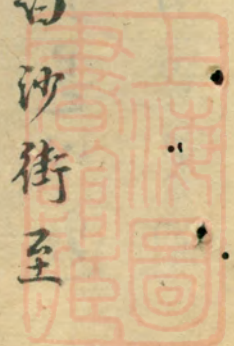 白沙街至
上海圖
書館藏